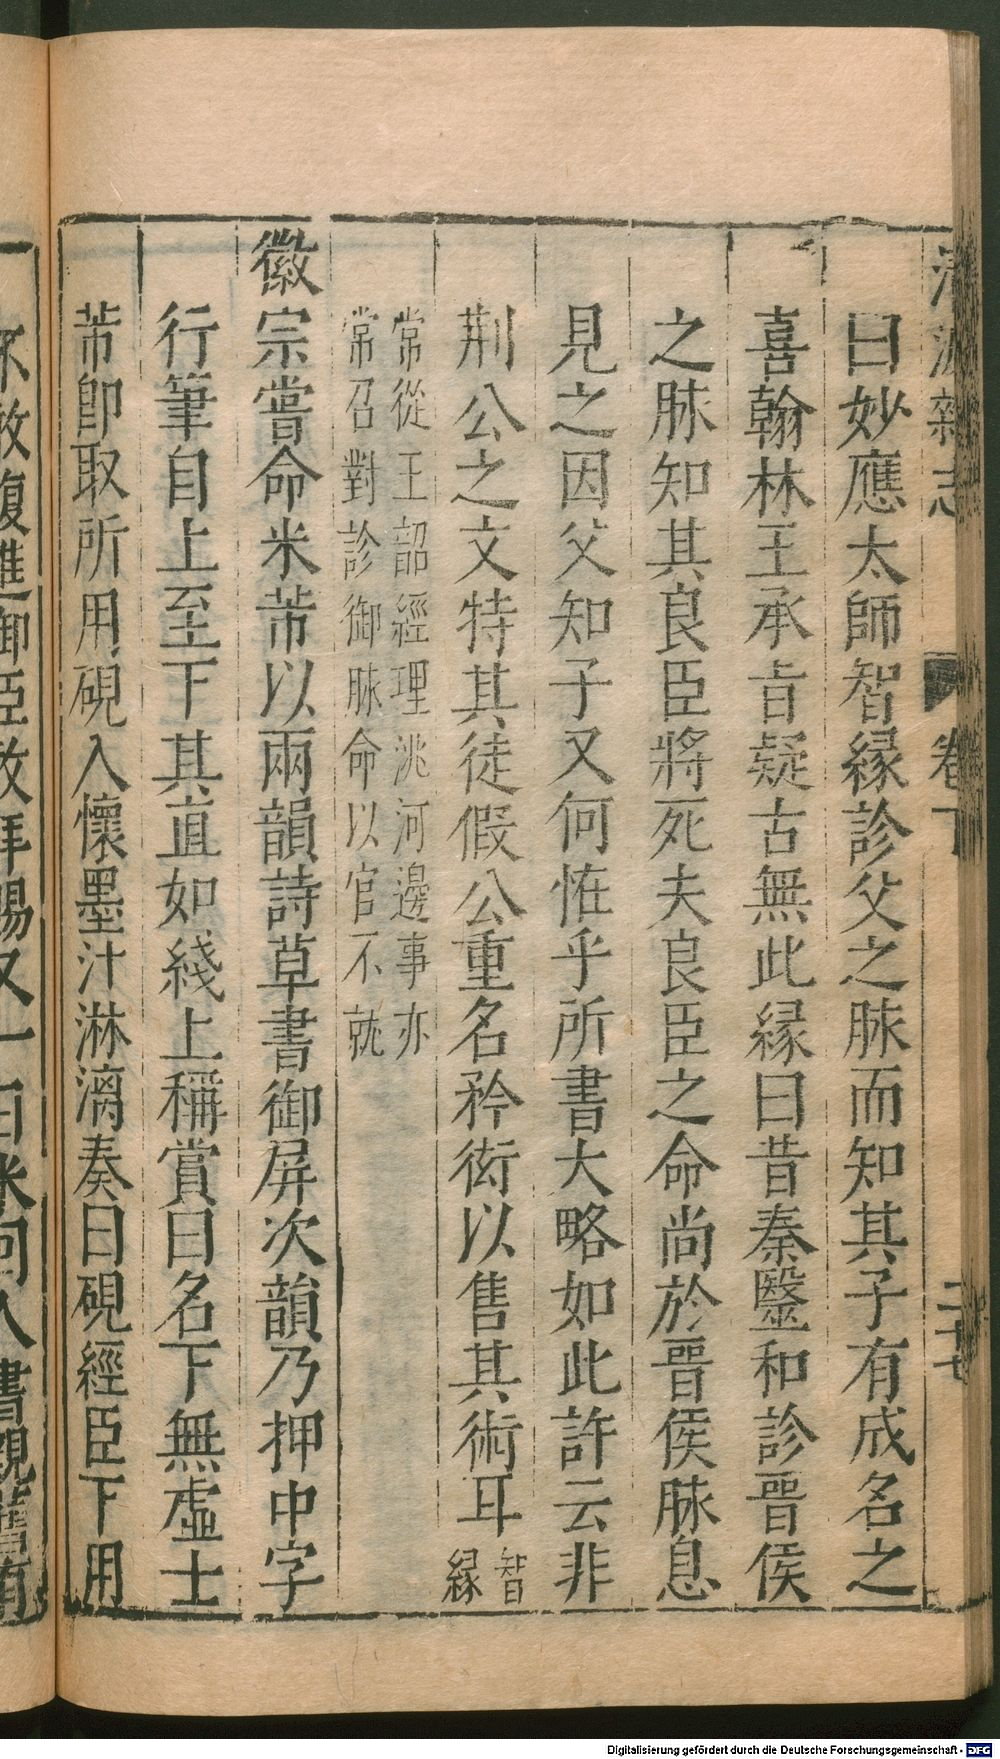 清波雜志 卷下 二十七
曰妙應太師智縁診父之脉而知其子有成名之
喜翰林王承旨疑古無此縁曰昔秦毉和診晉侯
之脉知其良臣將死夫良臣之命尚於晉侯脉息
見之因父知子又何恠乎所書大略如此許云非
荆公之文特其徒假公重名矜衒以售其術耳智縁
常從王韶經理洮河邊事亦
常召對診御脉命以官不就
徽宗嘗命米芾以兩韻詩草書御屏次韻乃押中字
行筆自上至下其直如綫上稱賞曰名下無虛士
芾卽取所用硯入懷墨汁淋漓奏曰硯經臣下用
不敢復進御臣敢拜賜又一日米囘人書親舊有
Digitalisierung gefördert durch die Deutsche Forschungsgemeinschaft - DFG